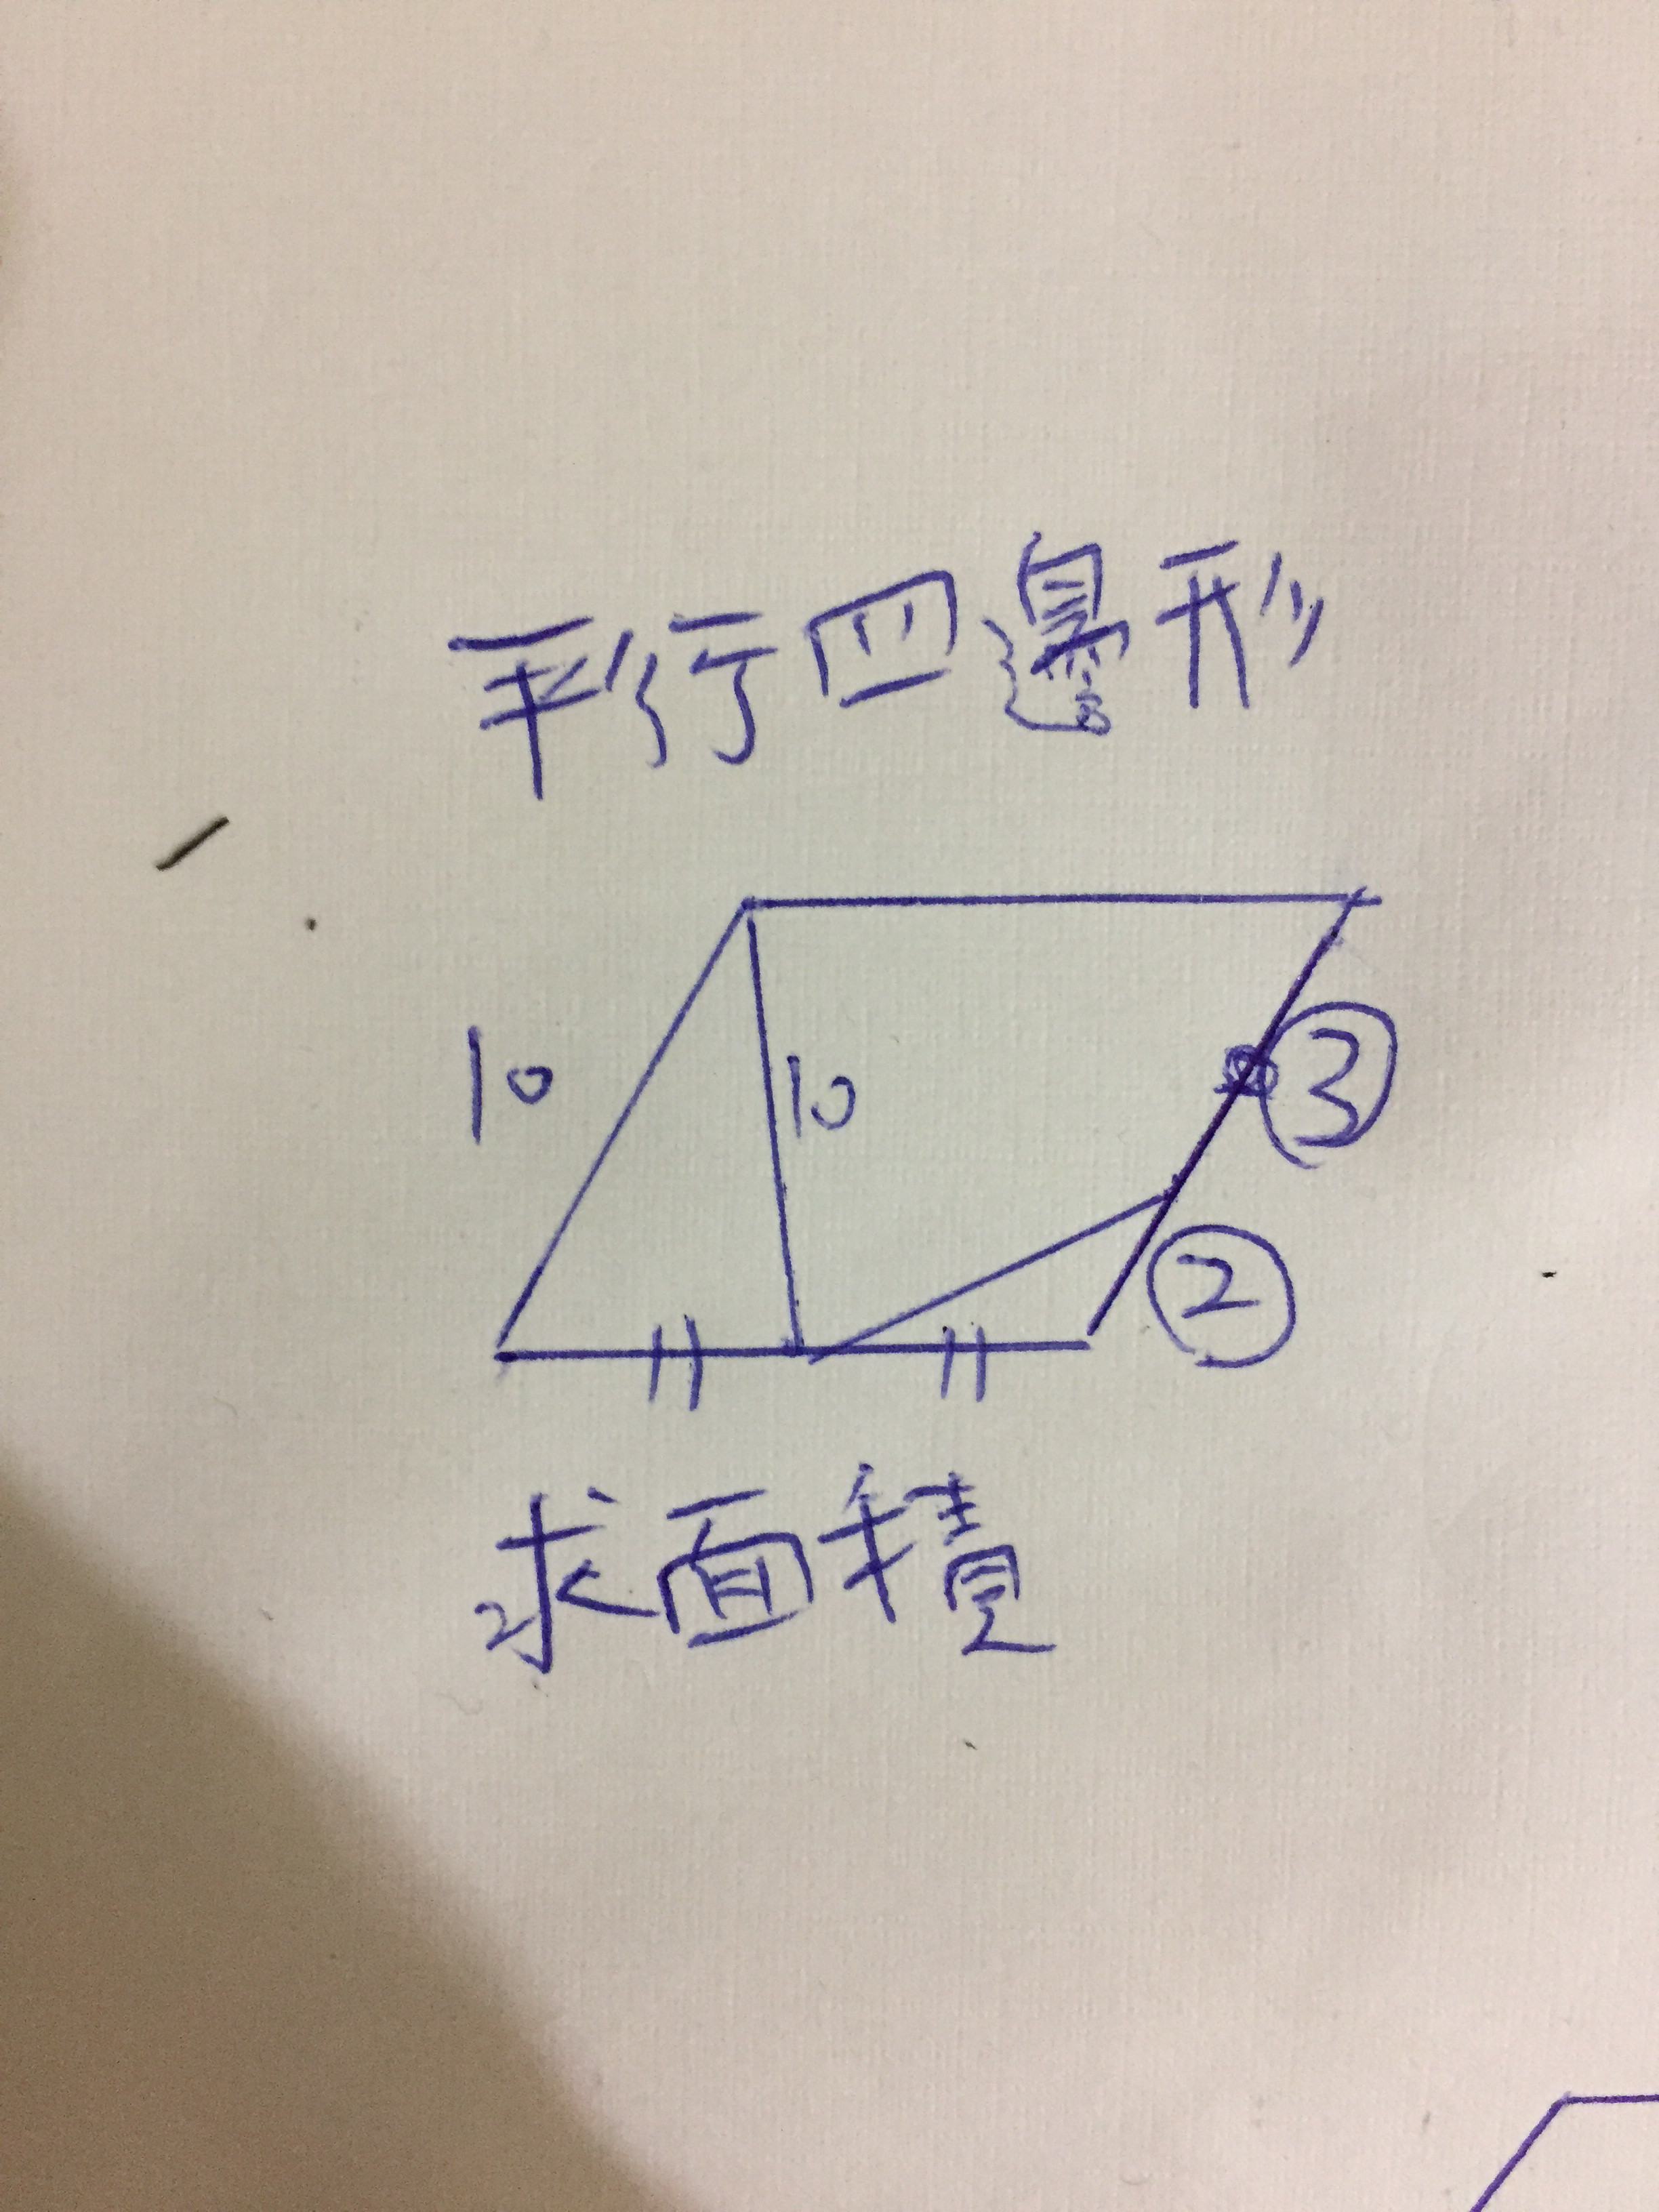 平行四邊形
10 10 ③
②
求面積